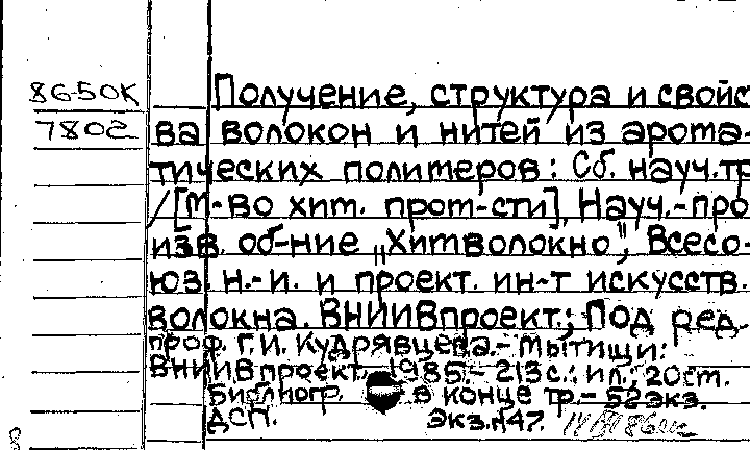 86-50К
7802
Получение, структура и свойс
ва волокон и нитей из арома-
тических полимеров: Сб. науч.тр
/[М-во хим. пром-сти], Науч.-про
изв. об-ние „Химволокно”, Всесо-
юз. н.-и. и проект. ин-т искусств.
волокна. ВНИИВпроект.; Под ред.
проф. Г.И. Кудрявцева.- Мытищи:
ВНИИВпроект, 1985.- 213с.: ил.; 20см.
Библиогр. в конце тр.- 52экз.
ДСП. Экз.№47.
8